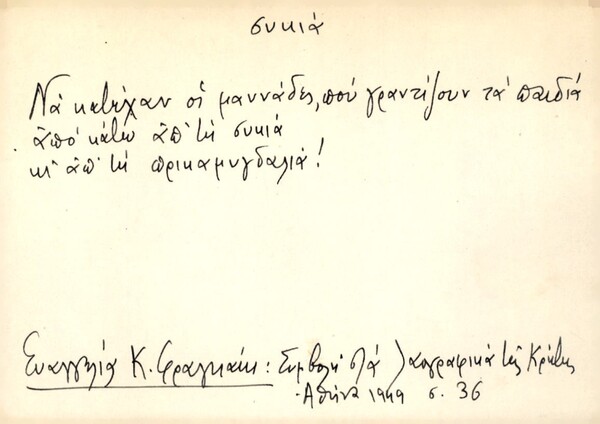 συκιά
Νὰ κατέχαν οἱ μαννάδες, ποὺ γραντίζουν τὰ παιδιά
ἀπὸ κάτω ἀπ' τὴ συκιά
κι ἀπ' τὴ πρικαμυγδαλιά!
Ευαγγελία Κ. Φραγκάκι: Συμβολὴ στὰ Λαογραφικὰ τῆς Κρήτης
Ἀθήνα 1949 σ. 36